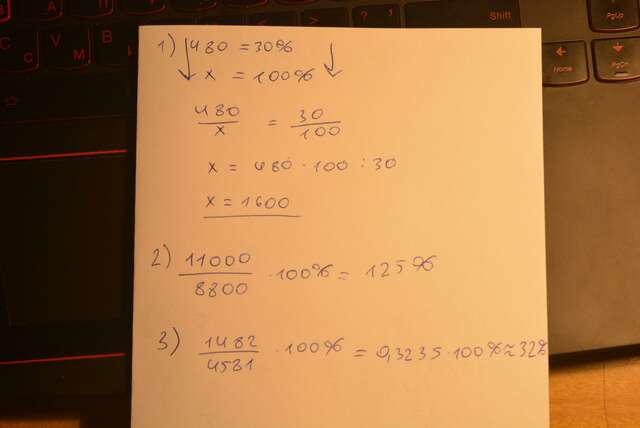 Shift
PgUp
Home
PgDn
1) 480 = 30%
x = 100%
480/x = 30/100
x = 480 · 100 : 30
x = 1600
2) 11000/8800 · 100% = 125%
3) 1482/4581 · 100% = 0,3235 · 100% ≈ 32%